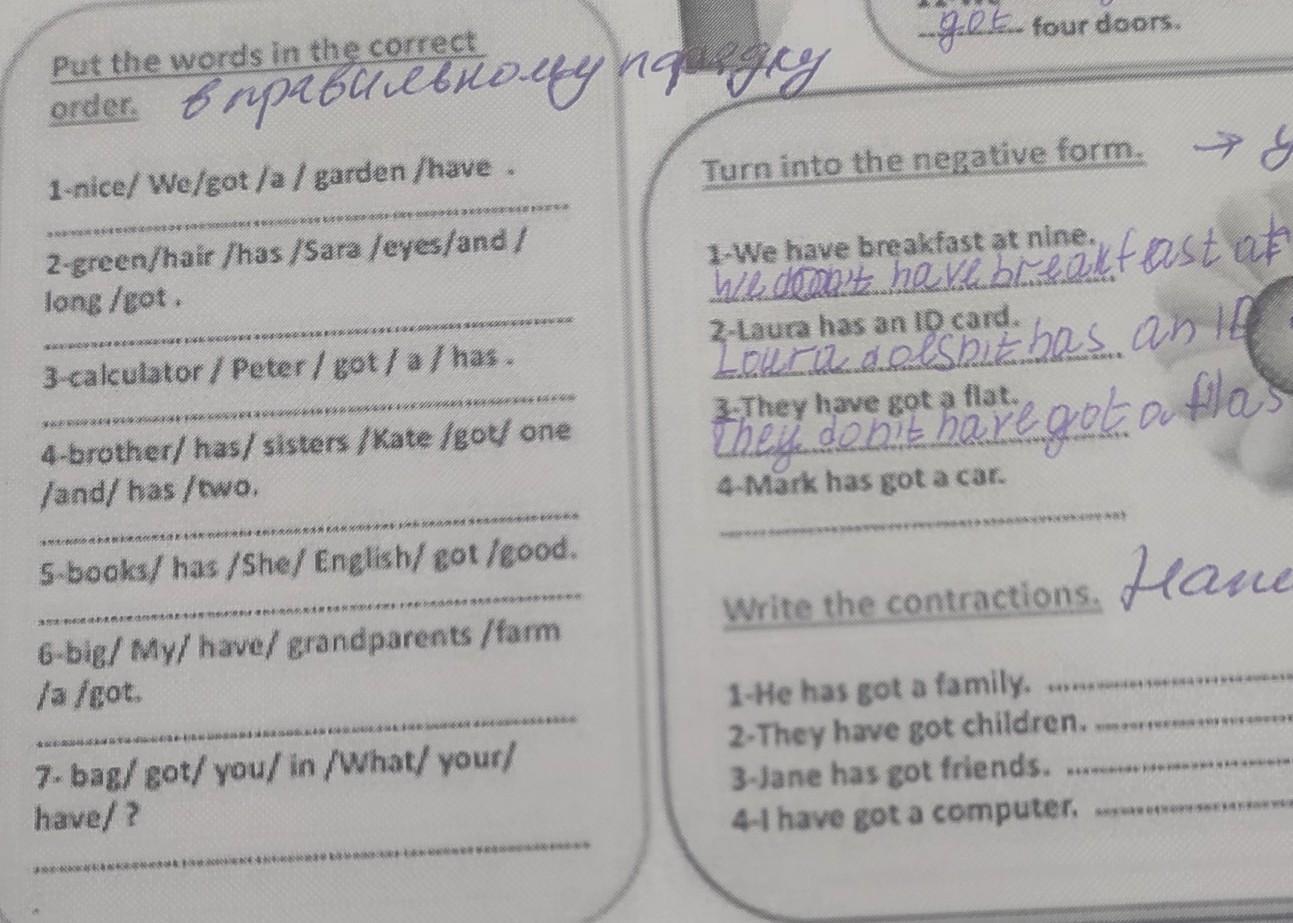 Put the words in the correct
order. в правильному порядку
1-nice/ We/got /a / garden /have .
2-green/hair /has /Sara /eyes/and /
long /got .
3-calculator / Peter / got / a / has .
4-brother/ has/ sisters /Kate /got/ one
/and/ has /two.
5-books/ has /She/ English/ got /good.
6-big/ My/ have/ grandparents /farm
/a /got.
7- bag/ got/ you/ in /What/ your/
have/ ?
got four doors.
Turn into the negative form. →
1-We have breakfast at nine.
We don't have breakfast at
2-Laura has an ID card.
Loura doesn't has an ID
3-They have got a flat.
They don't have got a flas
4-Mark has got a car.
Write the contractions.
1-He has got a family.
2-They have got children.
3-Jane has got friends.
4-I have got a computer.